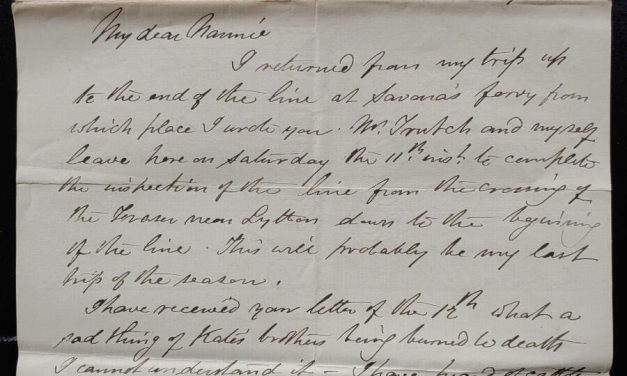 My dear Nannie
I returned from my trip up
to the end of the line at Savana's ferry from
which place I wrote you. Mr. Trutch and myself
leave here on Saturday the 11th inst. to complete
the inspection of the line from the crossing of
the Fraser near Lytton down to the begining
of the line. This will probably be my last
trip of the season.
I have received your letter of the 12th what a
sad thing of Kates brothers being burned to death
I cannot understand it – I have heard of